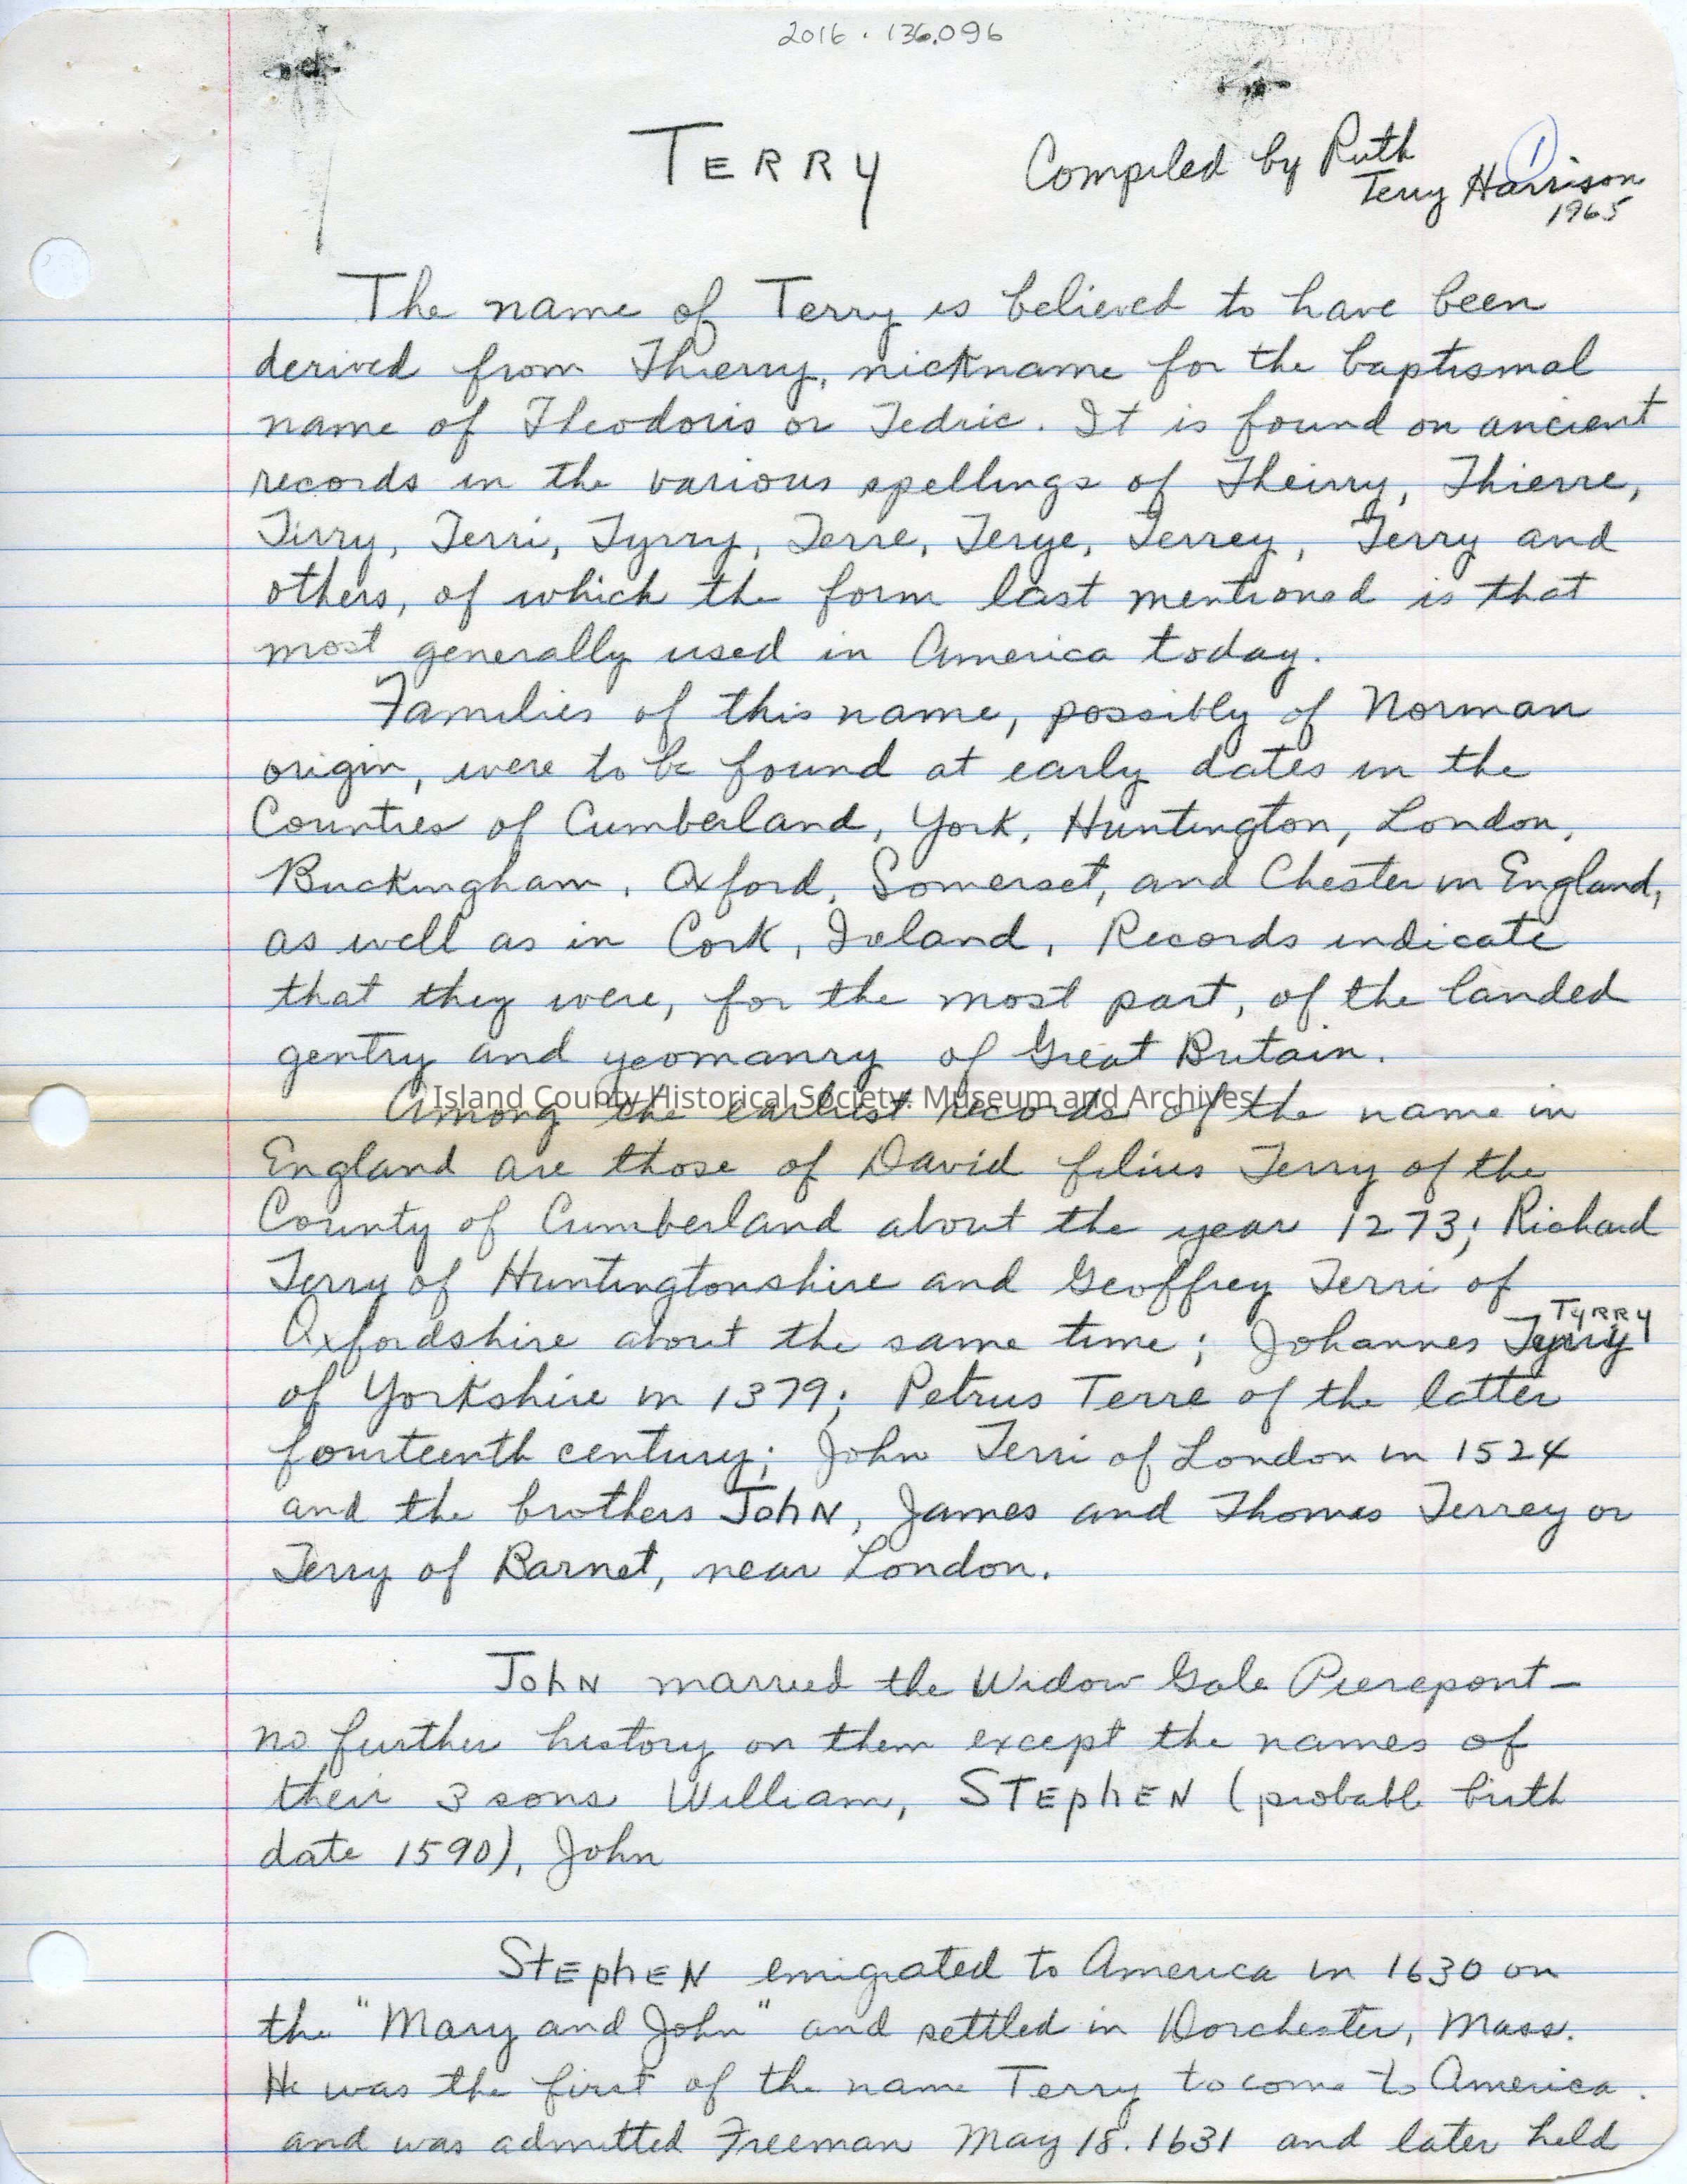 2016.136.096
TERRY
Compiled by Ruth
Terry Harrison
1965
1
The name of Terry is believed to have been
derived from Thierry, nickname for the baptismal
name of Theodoris or Tedric. It is found on ancient
records in the various spellings of Theirry, Thierre,
Tirry, Terri, Tyrry, Terre, Terye, Terrey, Terry and
others, of which the form last mentioned is that
most generally used in America today.
Families of this name, possibly of Norman
origin, were to be found at early dates in the
Counties of Cumberland, York, Huntington, London,
Buckingham, Oxford, Somerset, and Chester in England,
as well as in Cork, Ireland. Records indicate
that they were, for the most part, of the landed
gentry and yeomanry of Great Britain.
Island County Historical Society. Museum and Archives
Among the earliest records of the name in
England are those of David filius Terry of the
County of Cumberland about the year 1273; Richard
Terry of Huntingtonshire and Geoffrey Terri of
TYRRY
Oxfordshire about the same time; Johannes Tyrry
of Yorkshire in 1379; Petrus Terre of the latter
fourteenth century; John Terri of London in 1524
and the brothers JohN, James and Thomas Terrey or
Terry of Barnet, near London.
JohN married the Widow Gale Pierepont-
no further history on them except the names of
their 3 sons William, STEphEN (probable birth
date 1590), John
StEphEN emigrated to America in 1630 on
the "Mary and John" and settled in Dorchester, Mass.
He was the first of the name Terry to come to America.
and was admitted Freeman May 18. 1631 and later held